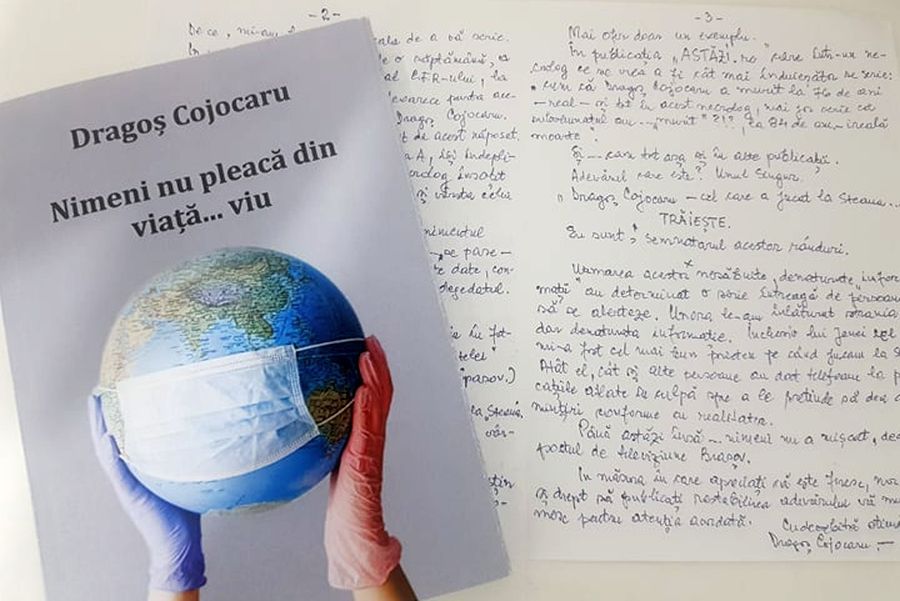 Dragoș Cojocaru
Nimeni nu pleacă din
viață... viu
- 2 -
De ce, mi-am
ale de a vă scrie.
o săptămână,
al CFR-ului, la
deoarece pentru ace-
Dragoș Cojocaru.
de acest năposet
A, își îndepli-
insolit
și vârsta celui
- se pare -
date, con-
degedatul.
în fot-
telei
Brașov.)
la Steaua,
vâr-
- 3 -
Mai ofer doar un exemplu.
În publicația "ASTĂZI.ro" care într-un ne-
crolog ce se vrea a fi cât mai înduioșător se scrie:
cum că Dragoș Cojocaru a murit la 76 de ani
- real - și tot în acest necrolog, mai jos scrie că
subsemnatul am... "murit" ?!?, la 84 de ani, ireală
moarte.
Și... cam tot așa și în alte publicații.
Adevărul care este? Unul singur.
"Dragoș Cojocaru - cel care a jucat la Steaua...
TRĂIEȘTE.
Eu sunt, semnatarul acestor rânduri.
Urmarea acestei nesăbuite, denaturate infor-
mații au determinat o serie întreagă de persoane
să se alerteze. Unora le-am înlăturat
dar denaturata informație. Inclusiv lui Jenei cel
mi-a fost cel mai bun prieten pe când jucam la S
Atât el, cât și alte persoane au dat telefoane la p
cațiile aflate în culpă spre a le pretinde să dea
mințiri conforme cu realitatea.
Până astăzi însă... nimeni nu a mișcat, dec
postul de televiziune Brașov.
În măsura în care apreciați că este firesc,
și drept să publicați restabilirea adevărului vă mu
mesc pentru atenția acordată.
Cu deosebită stimă
Dragoș Cojocaru